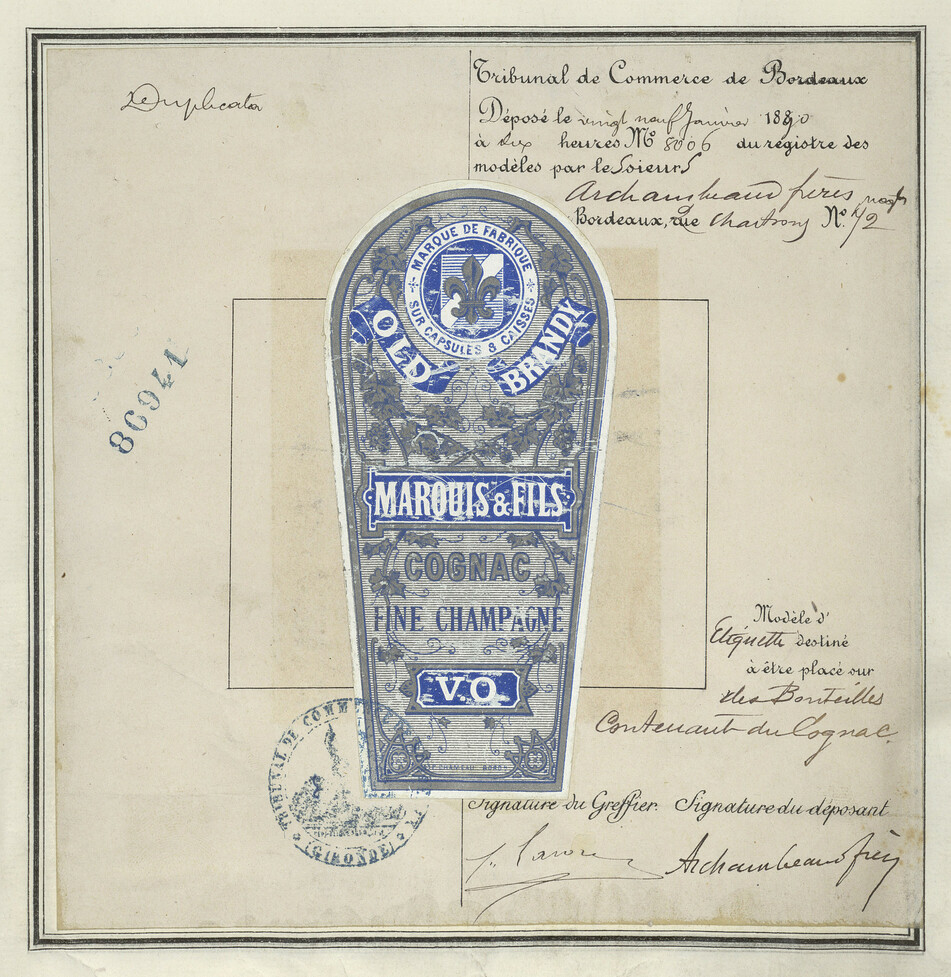 Duplicata
Tribunal de Commerce de Bordeaux
Déposé le vingt neuf Janvier 1890
à dix heures No 8006 du régistre des
modèles par le Sieurs
Archambeaud frères
Bordeaux, rue Chartrons No 42
86941
MARQUE DE FABRIQUE
SUR CAPSULES & CAISSES
OLD BRANDY
MARQUIS & FILS
COGNAC
FINE CHAMPAGNE
V.O
Modèle d'
Etiquette destiné
à être placé sur
des Bouteilles
Contenant du Cognac.
TRIBUNAL DE COMMERCE
(GIRONDE)
Signature du Greffier. Signature du déposant
Archambeaud frères